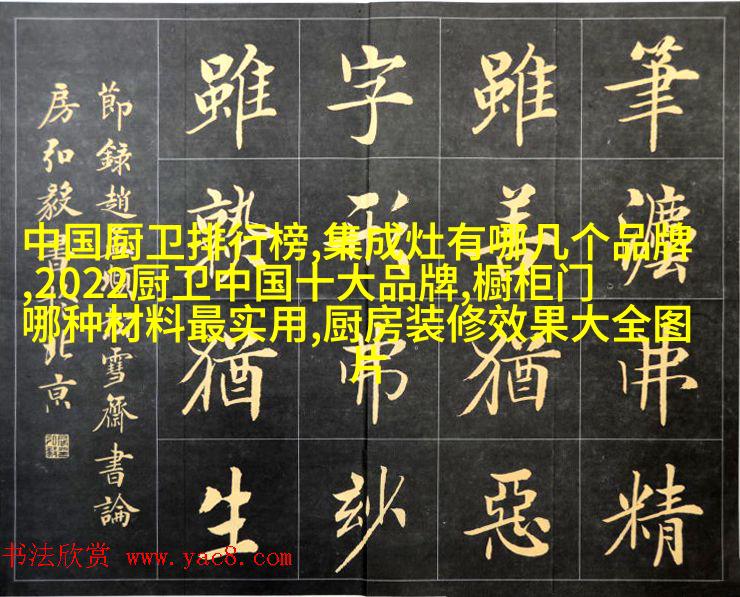 筆灋弗精
雖善猶惡
字形弗玅
雖熟猶生
節録趙孟頫松雪齋書論
房弘毅書於北京
中国厨卫排行榜,集成灶有哪几个品牌
,2022厨卫中国十大品牌,橱柜门
哪种材料最实用,厨房装修效果大全图
片
书法欣赏 www.yac8.com